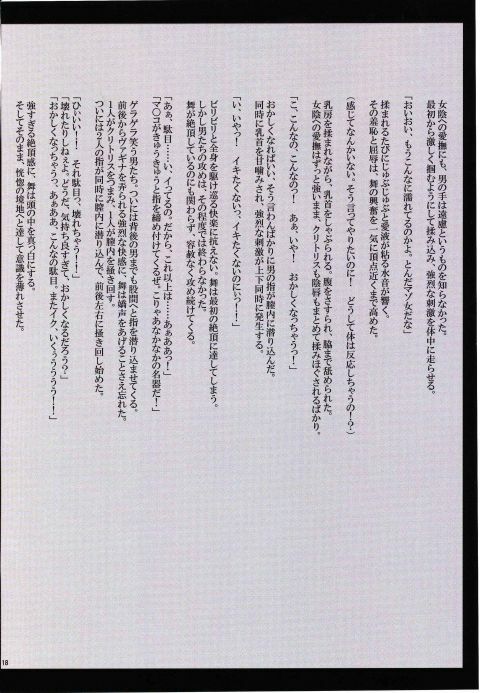 女陰への愛撫にも、男の手は遠慮というものを知らなかった。
最初から激しく掴むようにして揉み込み、強烈な刺激を体中に走らせる。
「おいおい、もうこんなに濡れてるのかよ。とんだマゾ女だな」
揉まれるたびにじゅぷじゅぷと愛液が粘る水音が響く。
その羞恥と屈辱は、舞の興奮を一気に頂点近くまで高めた。
(感じてなんかいない。そう言ってやりたいのに！　どうして体は反応しちゃうの！？)
乳房を揉まれながら、乳首をしゃぶられる。腹をさすられ、脇まで舐められた。
女陰への愛撫はずっと強いまま、クリトリスも陰唇もまとめて揉みほぐされるばかり。
「こ、こんなの、こんなのっ！　あぁ、いや！　おかしくなっちゃうっ！」
おかしくなればいい、そう言わんばかりに男の指が膣内に潜り込んだ。
同時に乳首を甘噛みされ、強烈な刺激が上下同時に発生する。
「い、いやっ！　イキたくないっ、イキたくないのにぃっ！！」
ビリビリと全身を駆け巡る快楽に抗えない。舞は最初の絶頂に達してしまう。
しかし男たちの攻めは、その程度では終わらなかった。
舞が絶頂しているのにも関わらず、容赦なく攻め続けてくる。
「あぁ、駄目……、イ、イってるの。だから、これ以上は……あぁああっ！」
「マ○コがきゅうきゅうと指を締め付けてくるぜ。こりゃあなかなかの名器だ！」
ゲラゲラ笑う男たち。ついには背後の男までも股間へと指を潜り込ませてくる。
前後からヴァギナを弄られる強烈な快感に、舞は嬌声をあげることさえ忘れた。
1人がクリトリスをつまみ、1人が膣内を掻き回す。
ついには2人の指が同時に膣内に潜り込んで、前後左右に掻き回し始めた。
「ひぃいい！！　それ駄目っ、壊れちゃうう！！」
「壊れたりしねぇよ。どうだ、気持ち良すぎて、おかしくなるだろう？」
「おかしくなっちゃうっ、あぁああ、こんなの駄目。またイク、いくぅうううう！！」
強すぎる絶頂感に、舞は頭の中を真っ白にする。
そしてそのまま、恍惚の境地へと達して意識を薄れさせた。
18